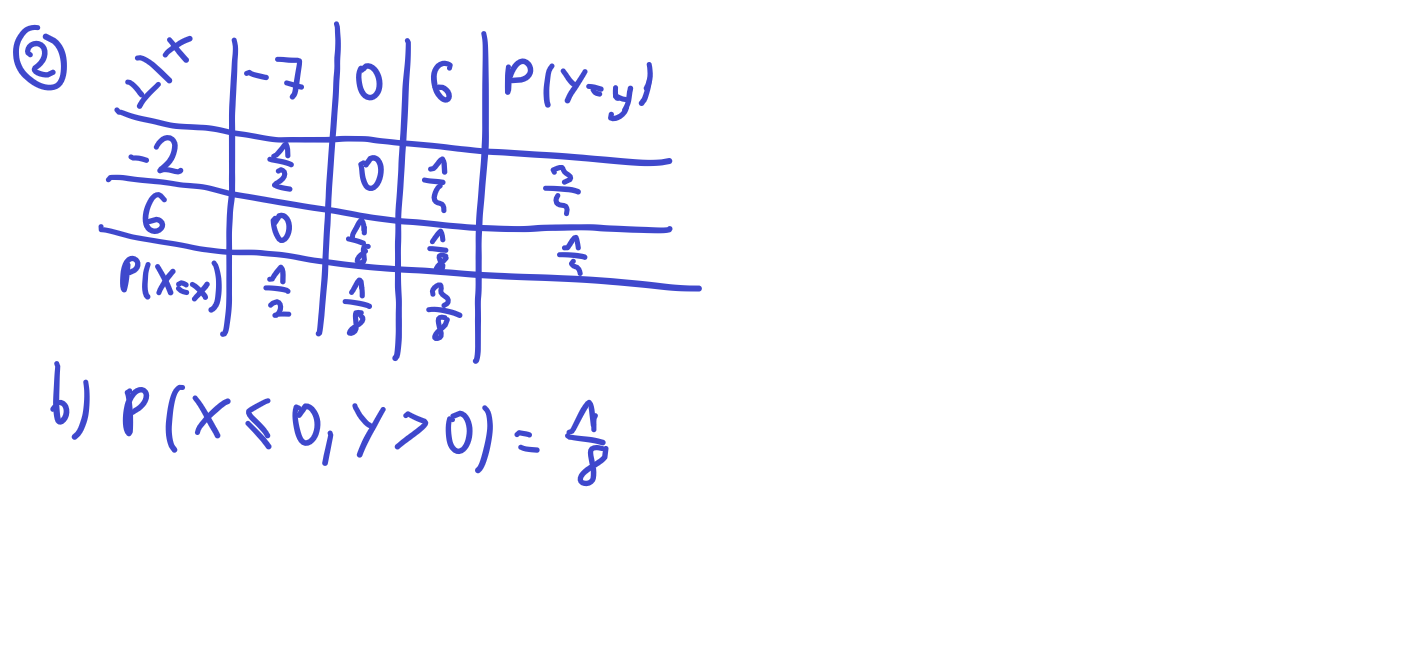 ② Y\X | -7 | 0 | 6 | P(Y=y)
-2 | 1/2 | 0 | 1/4 | 3/4
6 | 0 | 1/8 | 1/8 | 1/4
P(X=x) | 1/2 | 1/8 | 3/8
b) P(X≤0, Y>0) = 1/8